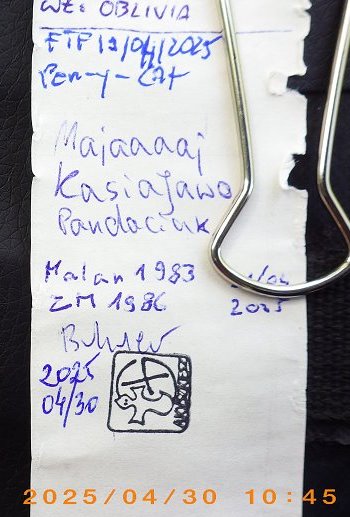 WE: OBLIVIA
FTF 19/04/2025
Penny-Cat
Majaaaaj
KasiaJawo
Pandaciuk
Malan 1983
ZM 1986
2025
2025
04/30
2025/04/30 10:45